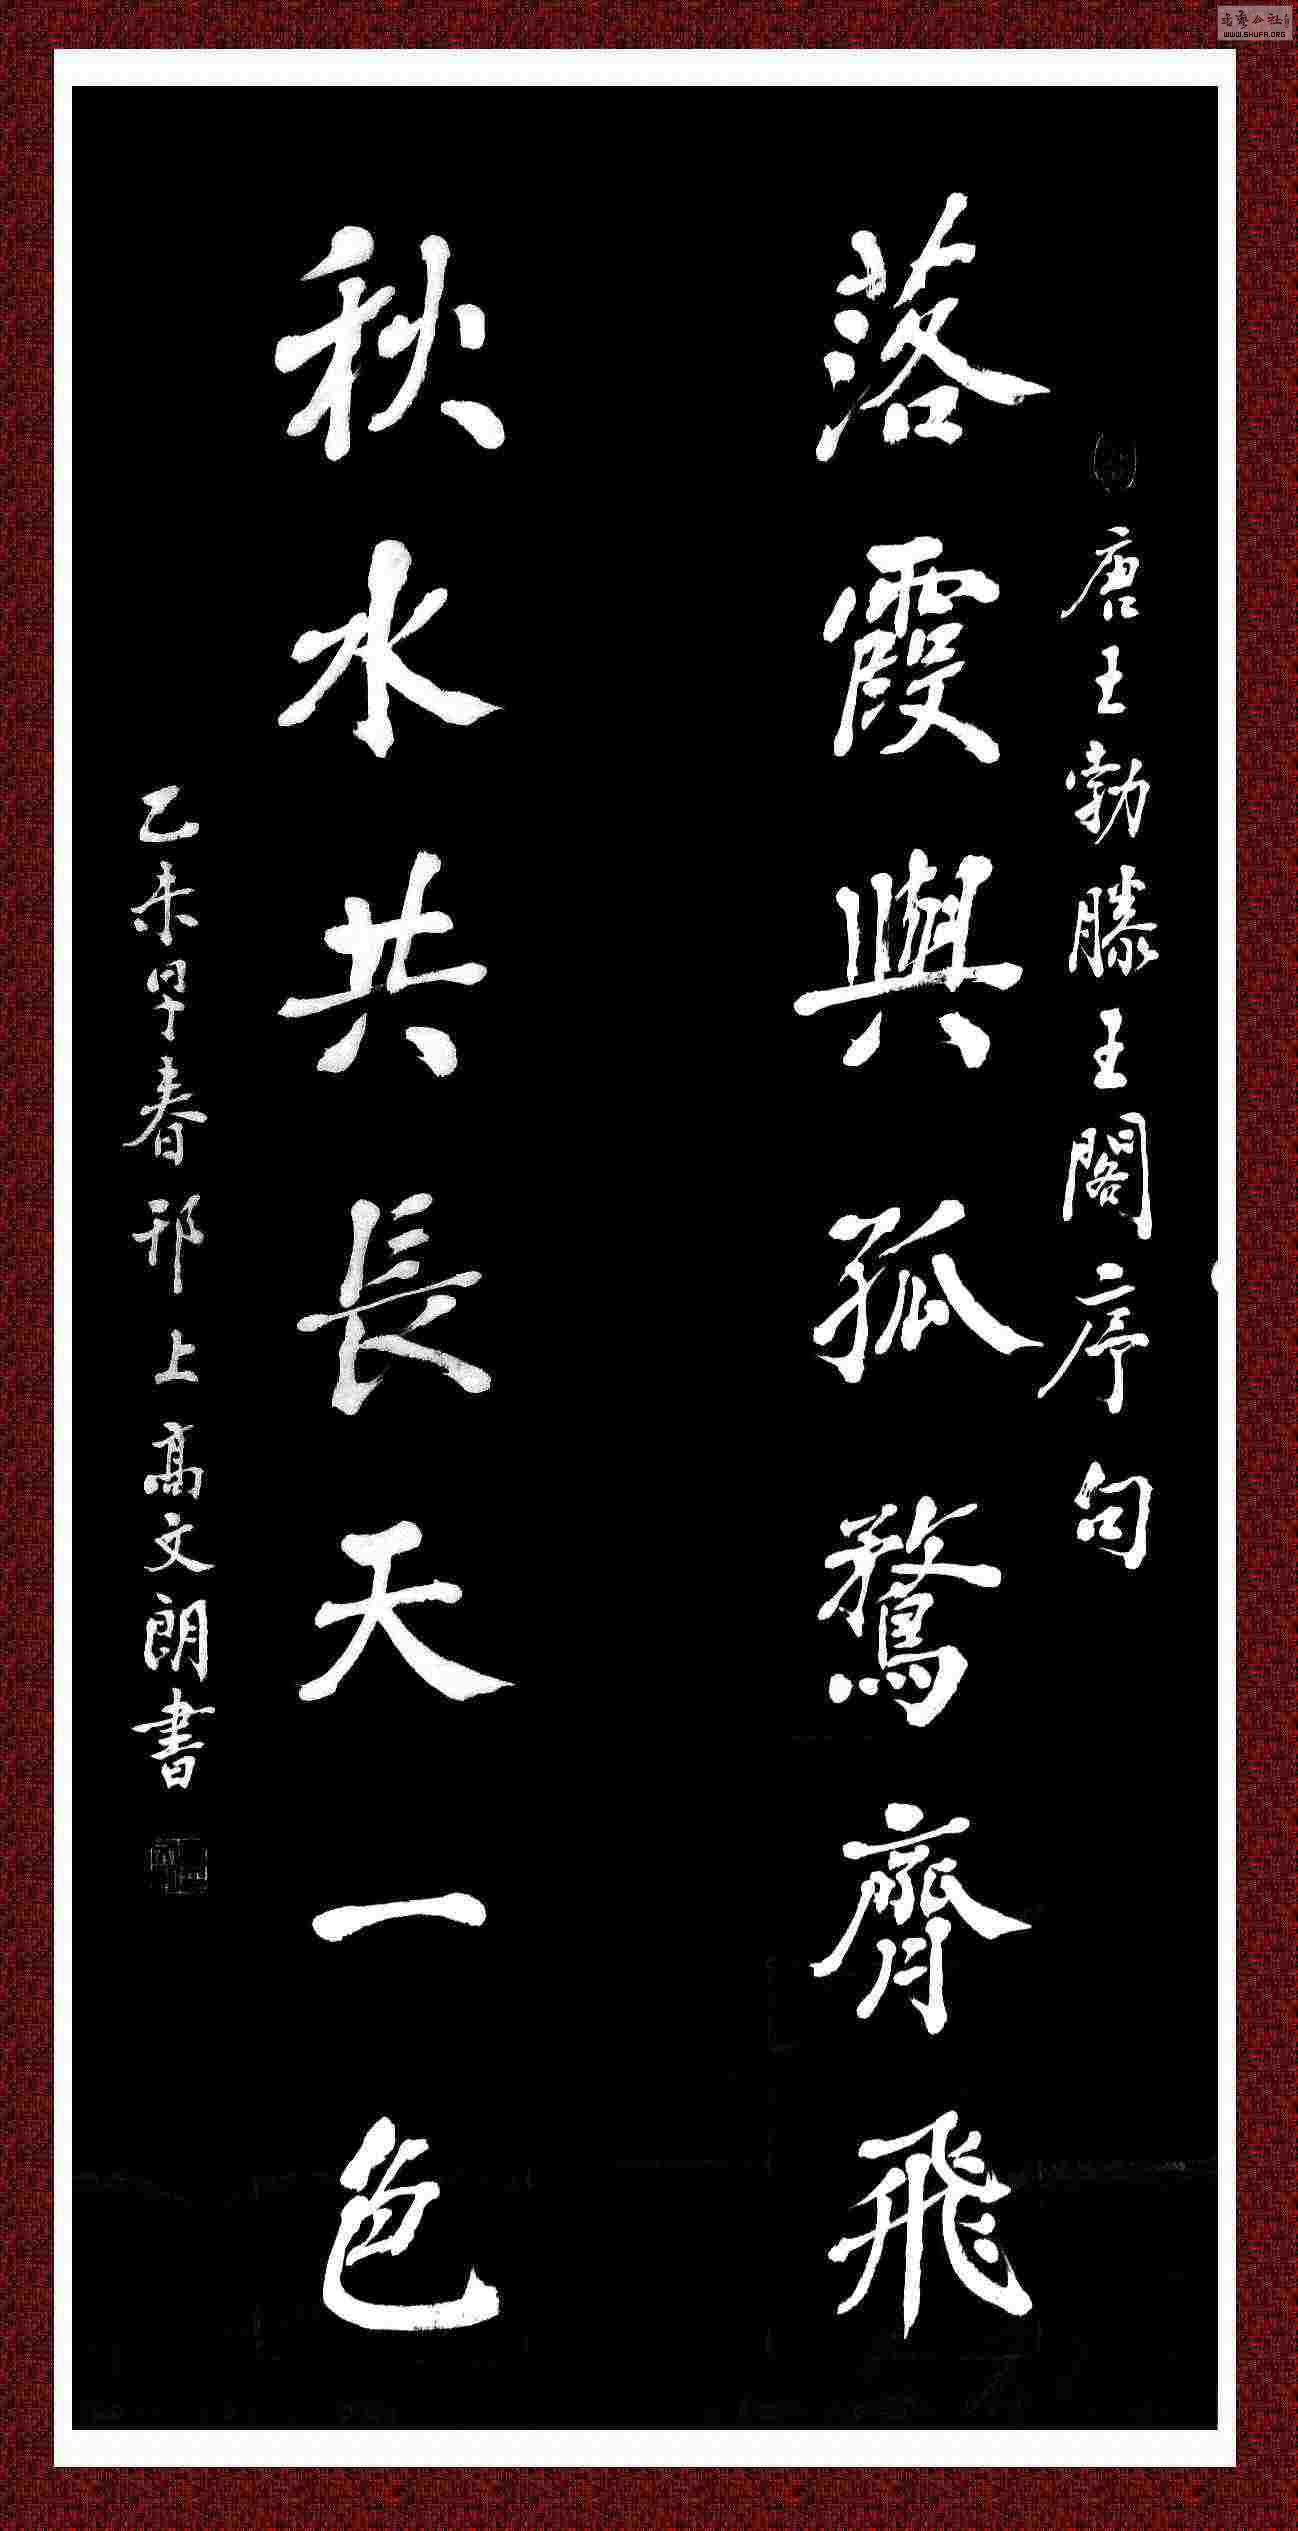 唐王勃滕王閣序句
落霞與孤鶩齊飛
秋水共長天一色
乙未早春邗上高文朗書
WWW.SHUFA.ORG